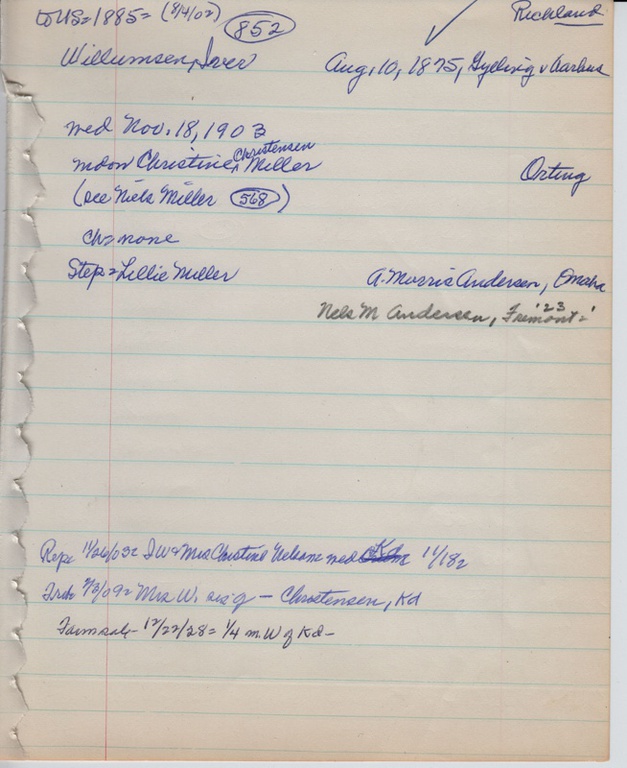 to US=1885= (8/4/02) 852 Richland
Willumsen, Iver Aug. 10, 1875, Gylling v Aarhus
med Nov. 18, 1903
mdow Christine Christensen Miller Orting
(see Niels Miller 568)
ch=none
Step=Lillie Miller A. Morris Andersen, Omaha
Nels M Andersen, Fremont '23
Repe 11/26/03= I W & Mrs Christine med Kd 11/18=
9/3/09= Mrs W. – Christensen, Kd
Farm sale – 12/22/28= 1/4 m. W of Kd –